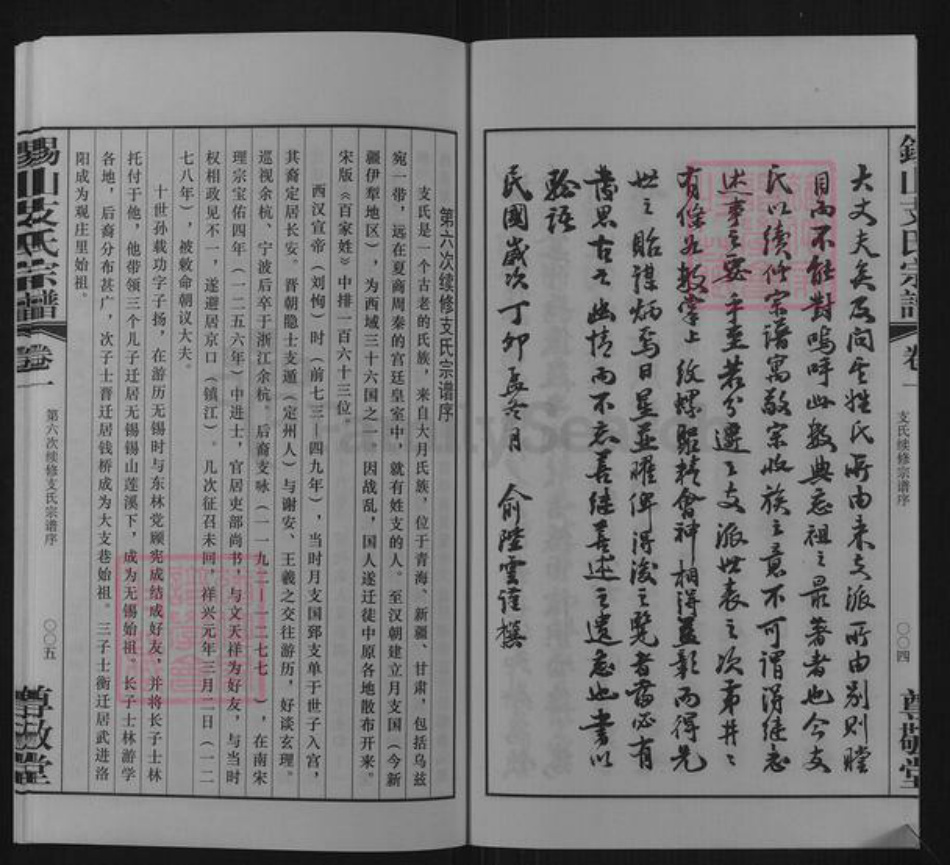 錫山支氏宗譜
卷一
支氏续修宗谱序
〇〇四
尊敬堂
大丈夫矣及问其姓氏所由来支派所由别则瞠
目而不能對嗚呼此数典忘祖之最著者也今支
氏以續修宗譜寓敬宗收族之意不可謂得繼志
述事之要乎至若分遷之支派世表之次第井井
有條如数掌上紋螺聚精會神相得益彰而得先
世之貽謀炳焉日星並曜俾得後之覽者當必有
發思古之幽情而不忘善繼善述之遺意也書以
驗語
民國歲次丁卯孟冬月 俞陸雲謹撰
第六次续修支氏宗谱序
支氏是一个古老的氏族，来自大月氏族，位于青海、新疆、甘肃，包括乌兹
宛一带，远在夏商周秦的宫廷皇室中，就有姓支的人。至汉朝建立月支国（今新
疆伊犁地区），为西域三十六国之一，因战乱，国人遂迁徒中原各地散布开来。
宋版《百家姓》中排一百六十三位
西汉宣帝（刘恂）时（前七三－四九年），当时月支国郅支单于世子入宫，
其裔定居长安。晋朝隐士支遁（定州人）与谢安、王羲之交往游历，好谈玄理。
巡视余杭、宁波后卒于浙江余杭。后裔支咏（一一九二－一二七七），在南宋
理宗宝佑四年（一二五六年）中进士，官居吏部尚书，与文天祥为好友，与当时
权相政见不一，遂避居京口（镇江）。几次征召未回，祥兴元年三月二日（一二
七八年），被敕命朝议大夫。
十世孙载功字子扬，在游历无锡时与东林党顾宪成结成好友，并将长子士林
托付于他，他带领三个儿子迁居无锡锡山莲溪下，成为无锡始祖。长子士林游学
各地，后裔分布甚广，次子士晋迁居钱桥成为大支巷始祖。三子士衡迁居武进洛
阳成为观庄里始祖。
錫山支氏宗譜
卷一
第六次续修支氏宗谱序
〇〇五
尊敬堂
FamilySearch